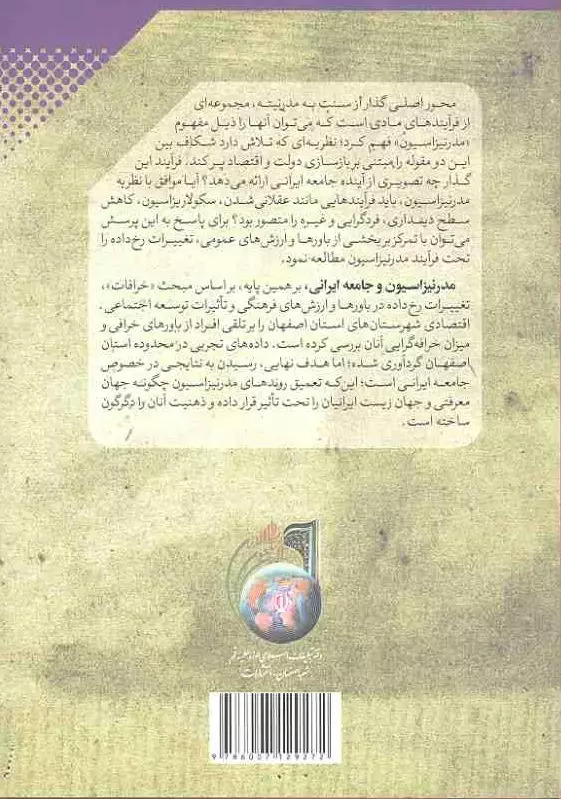 محور اصلی گذار از سنت به مدرنیته، مجموعه‌ای
از فرآیندهای مادی است که می‌توان آنها را ذیل مفهوم
«مدرنیزاسیون» فهم کرد؛ نظریه‌ای که تلاش دارد شکاف بین
این دو مقوله را مبتنی بر بازسازی دولت و اقتصاد پر کند. فرآیند این
گذار چه تصویری از آینده جامعه ایرانی ارائه می‌دهد؟ آیا موافق با نظریه
مدرنیزاسیون، باید فرآیندهایی مانند عقلانی‌شدن، سکولاریزاسیون، کاهش
سطح دینداری، فردگرایی و غیره را متصور بود؟ برای پاسخ به این پرسش
می‌توان با تمرکز بر بخشی از باورها و ارزش‌های عمومی، تغییرات رخ‌داده را
تحت فرآیند مدرنیزاسیون مطالعه نمود.
مدرنیزاسیون و جامعه ایرانی، بر همین پایه، بر اساس مبحث «خرافات»،
تغییرات رخ‌داده در باورها و ارزش‌های فرهنگی و تأثیرات توسعه اجتماعی.
اقتصادی شهرستان‌های استان اصفهان را بر تلقی افراد از باورهای خرافی و
میزان خرافه‌گرایی آنان بررسی کرده است. داده‌های تجربی در محدوده استان
اصفهان گردآوری شده؛ اما هدف نهایی، رسیدن به نتایجی در خصوص
جامعه ایرانی است؛ این‌که تعمیق روندهای مدرنیزاسیون چگونه جهان
معرفتی و جهان زیست ایرانیان را تحت تأثیر قرار داده و ذهنیت آنان را دگرگون
ساخته است.
9 786007 129272